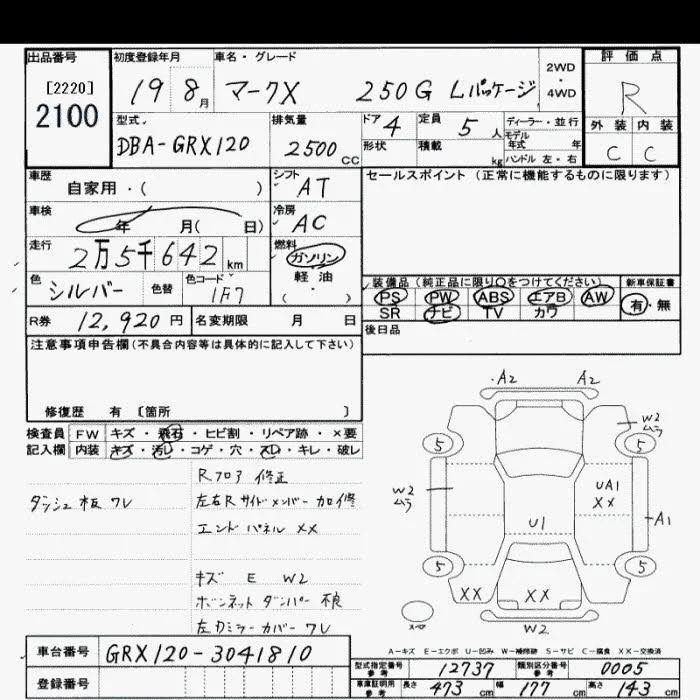 出品番号 初度登録年月 車名・グレード 2WD・4WD 評価点
[2220]
2100
19 8月 マークX 250G Lパッケージ R
型式 排気量 ドア 4 定員 5人 ディーラー・並行 外装 内装
DBA-GRX120 2500cc 形状 積載 kg モデル年式 年 C C
ハンドル 左・右
車歴 自家用・( ) シフト AT セールスポイント (正常に機能するものに限ります)
車検 年 月( 日) 冷房 AC
走行 2万5千642km 燃料 ガソリン
軽油
・( )
色 シルバー 色替 色コード 1F7
装備品 (純正品に限り○をつけてください) 新車保証書
PS PW ABS エアB AW 有・無
SR ナビ TV カワ
R券 12,920円 名変期限 月 日 後日品
注意事項申告欄(不具合内容等は具体的に記入して下さい)
修復歴 有 〔箇所 〕
検査員 FW キズ・飛石・ヒビ割・リペア跡・×要
記入欄 内装 キズ・汚レ・コゲ・穴・スレ・キレ・破レ
Rフロア 修正
ダッシュ板 ワレ 左右Rサイドメンバー 加修
エンドパネル XX
キズ E W2
ボンネットダンパー 不良
左ドミラーカバー ワレ
A2 A2
W2
ムラ
5 5
W2
ムラ
UA1
XX
A1
U1
5 5
XX XX
スペア
W2
A-キズ E-エクボ U-凹み W-補修跡 S-サビ C-腐食 XX-交換済
車台番号 GRX120-3041810
登録番号
型式指定番号 参考 12737 類別区分番号 参考 0005
車庫証明用 参考 長さ 473cm 幅 177cm 高さ 143cm